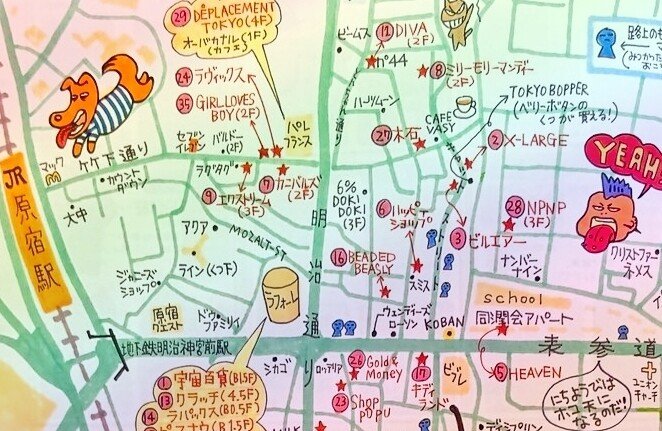 29 DÉPLACEMENT
TOKYO(4F)
オーバカナル(1F)
(カフェ)
24 ラヴィックス
35 GIRL LOVES
BOY(2F)
セブン
イレブン
バルドー
(2F)
パレ
フランス
マック
M
竹下通り
カウント
ダウン
大中
JR原宿駅
ラグタグ
9 エクストリーム
(3F)
7 カニバルズ
(2F)
アクア
MOZALT-ST
ライン(くつ下)
ジャニーズ
ショップ
原宿
クエスト
ドゥ
ファミリィ
ラフォーレ
地下鉄明治神宮前駅
1 宇宙百貨(B1.5F)
13 クラッチ(4.5F)
14 ラパックス(B0.5F)
(B1.5F)
明治通り
シカゴ
ロッテリア
ビームス
11 DIVA
(2F)
ポ44
8 ミリーモリーマンデー
(2F)
ハーツムーン
CAFE
VASY
27 木石
TOKYO BOPPER
(ベリーボタンの
くつが買える!)
2 X-LARGE
キャットストリート
6%
DOKI
DOKI
(3F)
6 ハッピー
ショップ
28 NPNP
(3F)
3 ビルエアー
ナンバー
ナイン
16 BEADED
BEASLY
スミス
ウェンディーズ
ローソン
KOBAN
school
同潤会アパート
表参道
26 Gold &
Money
23 Shop
PO PU
17 キディ
ランド
ビブレ
5 HEAVEN
YEAH!
クリストファー
ネメス
ユニオン
チャーチ
にちようびは
ホコ天に
なるのだ!
路上のも
(みつかった
おこ